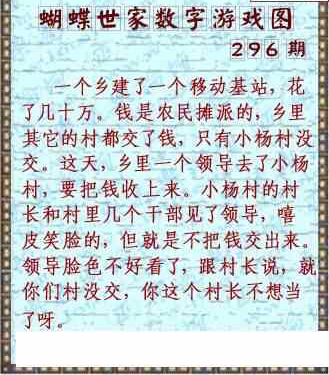 蝴蝶世家数字游戏图
296期
一个乡建了一个移动基站，花
了几十万。钱是农民摊派的，乡里
其它的村都交了钱，只有小杨村没
交。这天，乡里一个领导去了小杨
村，要把钱收上来。小杨村的村
长和村里几个干部见了领导，嘻
皮笑脸的，但就是不把钱交出来。
领导脸色不好看了，跟村长说，就
你们村没交，你这个村长不想当
了呀。